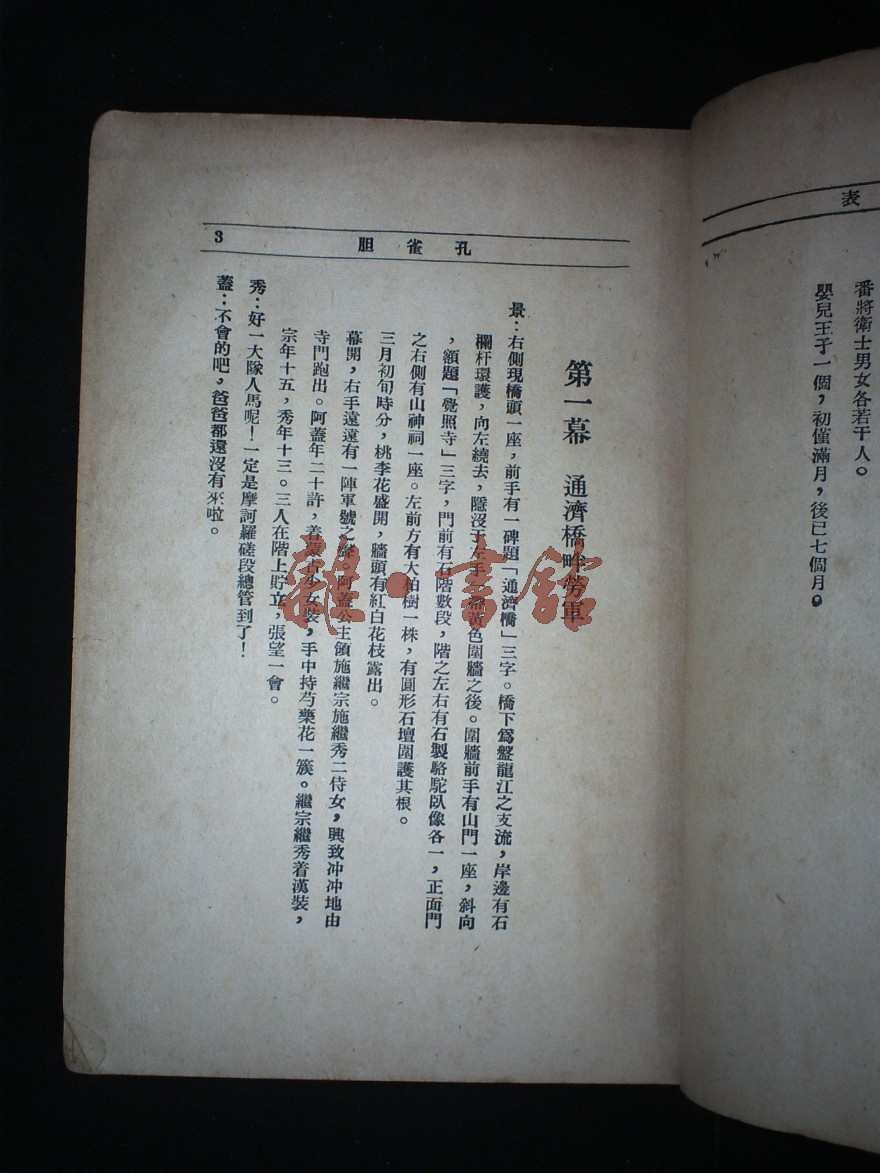 表
番將衛士男女各若干人。
嬰兒王子一個，初僅滿月，後已七個月。
孔雀胆
3
第一幕　通濟橋畔勞軍
景：右側現橋頭一座，前手有一碑題「通濟橋」三字。橋下爲盤龍江之支流，岸邊有石
欄杆環護，向左繞去，隱沒于左手一帶黃色圍牆之後。圍牆前手有山門一座，斜向
，額題「覺照寺」三字，門前有石階數段，階之左右有石製駱駝臥像各一，正面門
之右側有山神祠一座。左前方有大柏樹一株，有圓形石壇圍護其根。
三月初旬時分，桃李花盛開，牆頭有紅白花枝露出。
幕開，右手遠遠有一陣軍號之聲。阿蓋公主領施繼宗施繼秀二侍女，興致冲冲地由
寺門跑出。阿蓋年二十許，着蒙古少女裝，手中持芍藥花一簇。繼宗繼秀着漢裝，
宗年十五，秀年十三。三人在階上貯立，張望一會。
秀：好一大隊人馬呢！一定是摩訶羅磋段總管到了！
蓋：不會的吧，爸爸都還沒有來啦。
龍·書館